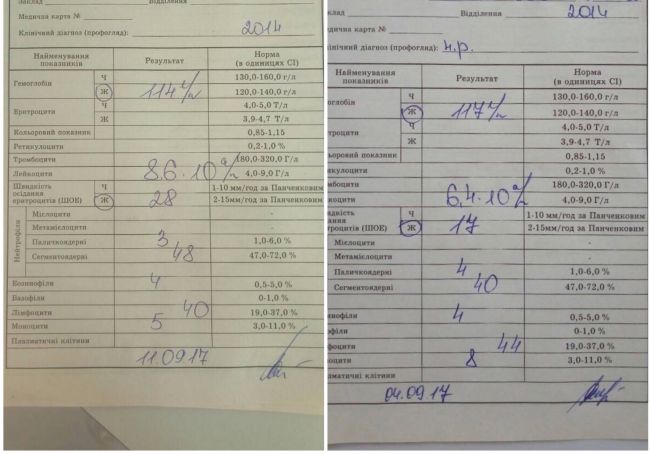 Заклад Відділення
Медична карта №
Клінічний діагноз (профогляд): 2014
Найменування показників Результат Норма (в одиницях СІ)
Гемоглобін Ч 130,0-160,0 г/л
Ж 114 г/л 120,0-140,0 г/л
Еритроцити Ч 4,0-5,0 Т/л
Ж 3,9-4,7 Т/л
Кольоровий показник 0,85-1,15
Ретикулоцити 0,2-1,0 %
Тромбоцити 180,0-320,0 Г/л
Лейкоцити 8,6·10 г/л 4,0-9,0 Г/л
Швидкість осідання еритроцитів (ШОЕ) Ч 1-10 мм/год за Панченковим
Ж 28 2-15мм/год за Панченковим
Нейтрофіли
Мієлоцити -
Метамієлоцити -
Паличкоядерні 3 1,0-6,0 %
Сегментоядерні 48 47,0-72,0 %
Еозинофіли 4 0,5-5,0 %
Базофіли 0-1,0 %
Лімфоцити 40 19,0-37,0 %
Моноцити 5 3,0-11,0 %
Плазматичні клітини
11.09.17
аклад Відділення 2014
едична карта №
лінічний діагноз (профогляд): н.р.
Найменування показників Результат Норма (в одиницях СІ)
моглобін Ч 130,0-160,0 г/л
Ж 117 г/л 120,0-140,0 г/л
итроцити Ч 4,0-5,0 Т/л
Ж 3,9-4,7 Т/л
ьоровий показник 0,85-1,15
икулоцити 0,2-1,0 %
омбоцити 180,0-320,0 Г/л
коцити 6,4·10 г/л 4,0-9,0 Г/л
идкість ідання итроцитів (ШОЕ) Ч 1-10 мм/год за Панченковим
Ж 17 2-15мм/год за Панченковим
Мієлоцити -
Метамієлоцити -
Паличкоядерні 4 1,0-6,0 %
Сегментоядерні 40 47,0-72,0 %
инофіли 4 0,5-5,0 %
офіли 0-1,0 %
фоцити 44 19,0-37,0 %
оцити 8 3,0-11,0 %
зматичні клітини
04.09.17